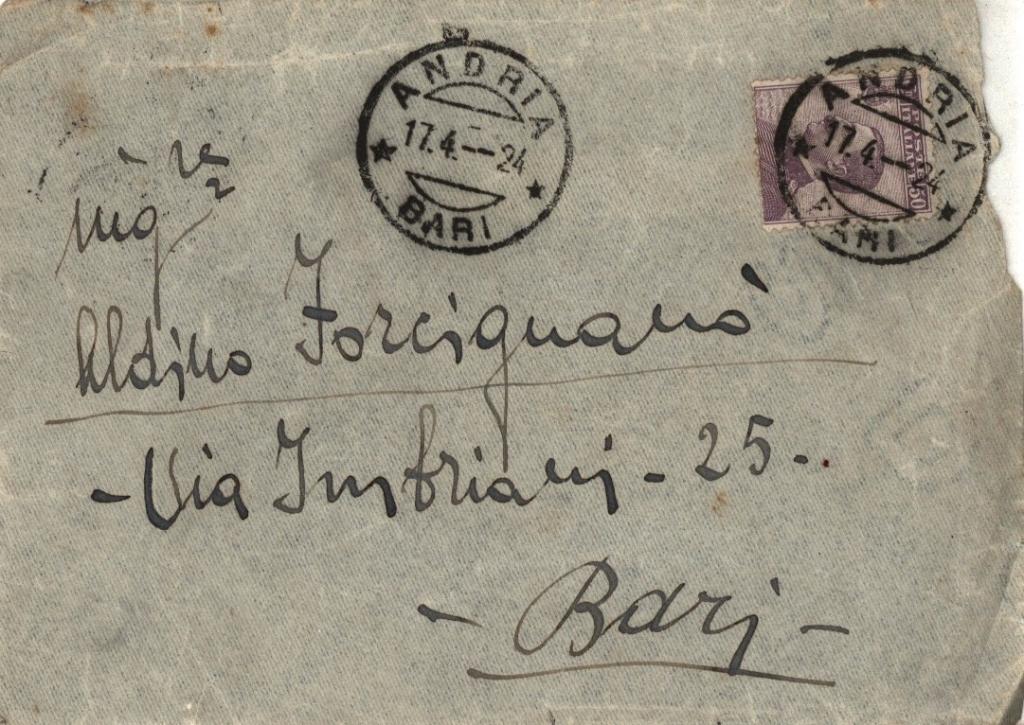 ANDRIA
17.4.--24
BARI
ANDRIA
17.4.--24
BARI
50
Forcignanò
- Via Imbriani - 25 -.
- Bari -